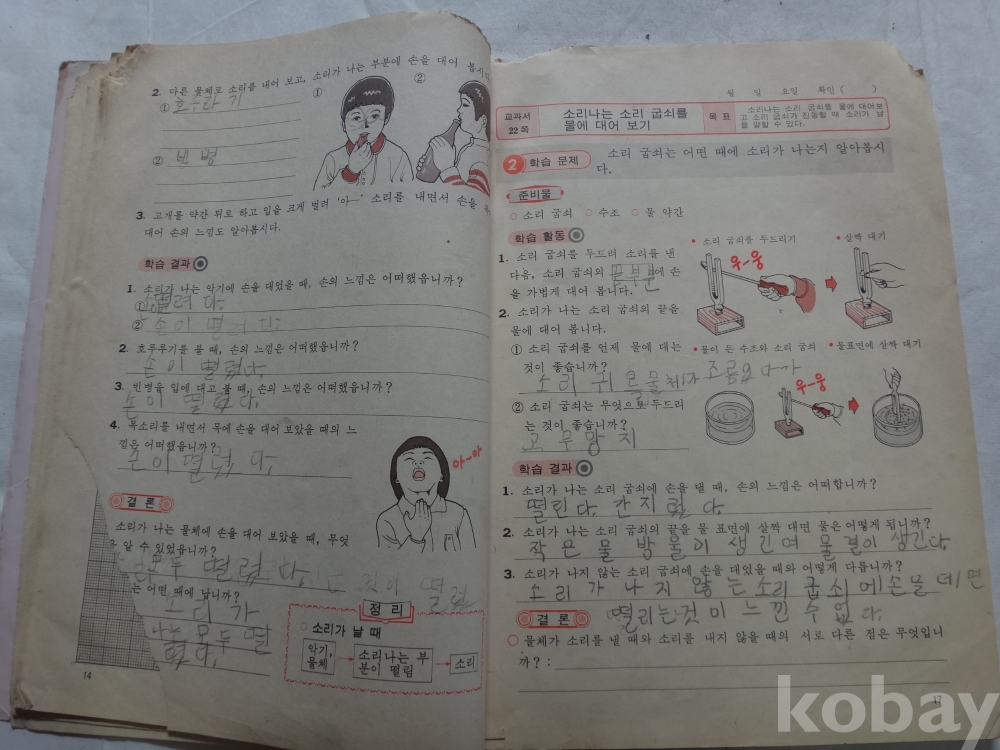 2. 다른 물체로 소리를 내어 보고, 소리가 나는 부분에 손을 대어 봅시다
① 호루라기
② 빈 병
①
②
3. 고개를 약간 뒤로 하고 입을 크게 벌려 '아—' 소리를 내면서 손을
대어 손의 느낌도 알아봅시다.
학습 결과
1. 소리가 나는 악기에 손을 대었을 때, 손의 느낌은 어떠했읍니까?
①
② 손이 떨려다.
2. 호루루기를 불 때, 손의 느낌은 어떠했읍니까?
손이 떨렸다,
3. 빈병을 입에 대고 불 때, 손의 느낌은 어떠했읍니까?
손이 떨렸다,
4. 목소리를 내면서 목에 손을 대어 보았을 때의 느
낌은 어떠했읍니까?
손이 떨렸다,
아-아
결론
소리가 나는 물체에 손을 대어 보았을 때, 무엇
알 수 있었읍니까?
모두 떨렸다. 는 것이 떨렸
는 어떤 때에 납니까?
소리가
나는 모두 떨
렸다.
정리
소리가 날 때
악기, 물체
소리나는 부분이 떨림
소리
14
월 일 요일 확인( )
교과서 22쪽
소리나는 소리 굽쇠를
물에 대어 보기
목표
소리나는 소리 굽쇠를 물에 대어보
고 소리 굽쇠가 진동할 때 소리가 남
을 말할 수 있다.
2 학습 문제
소리 굽쇠는 어떤 때에 소리가 나는지 알아봅시
다.
준비물
○ 소리 굽쇠 ○ 수조 ○ 물 약간
학습 활동
1. 소리 굽쇠를 두드려 소리를 낸
다음, 소리 굽쇠의 끝부분에 손
을 가볍게 대어 봅니다.
2. 소리가 나는 소리 굽쇠의 끝을
물에 대어 봅니다.
① 소리 굽쇠를 언제 물에 대는
것이 좋습니까?
소리
② 소리 굽쇠는 무엇으로 두드리
는 것이 좋습니까?
고무망치
• 소리 굽쇠를 두드리기
• 살짝 대기
우-웅
• 물이 든 수조와 소리 굽쇠
• 물표면에 살짝 대기
우-웅
학습 결과
1. 소리가 나는 소리 굽쇠에 손을 댈 때, 손의 느낌은 어떠합니까?
떨린다, 간지럽다.
2. 소리가 나는 소리 굽쇠의 끝을 물 표면에 살짝 대면 물은 어떻게 됩니까?
작은 물 방울이 생긴며 물결이 생긴다,
3. 소리가 나지 않는 소리 굽쇠에 손을 대었을 때와 어떻게 다릅니까?
소리가 나지 않는 소리 굽쇠에 손을 데면
떨리는것이 느낀 수 없다.
결론
○ 물체가 소리를 낼 때와 소리를 내지 않을 때의 서로 다른 점은 무엇입니
까? :
kobay